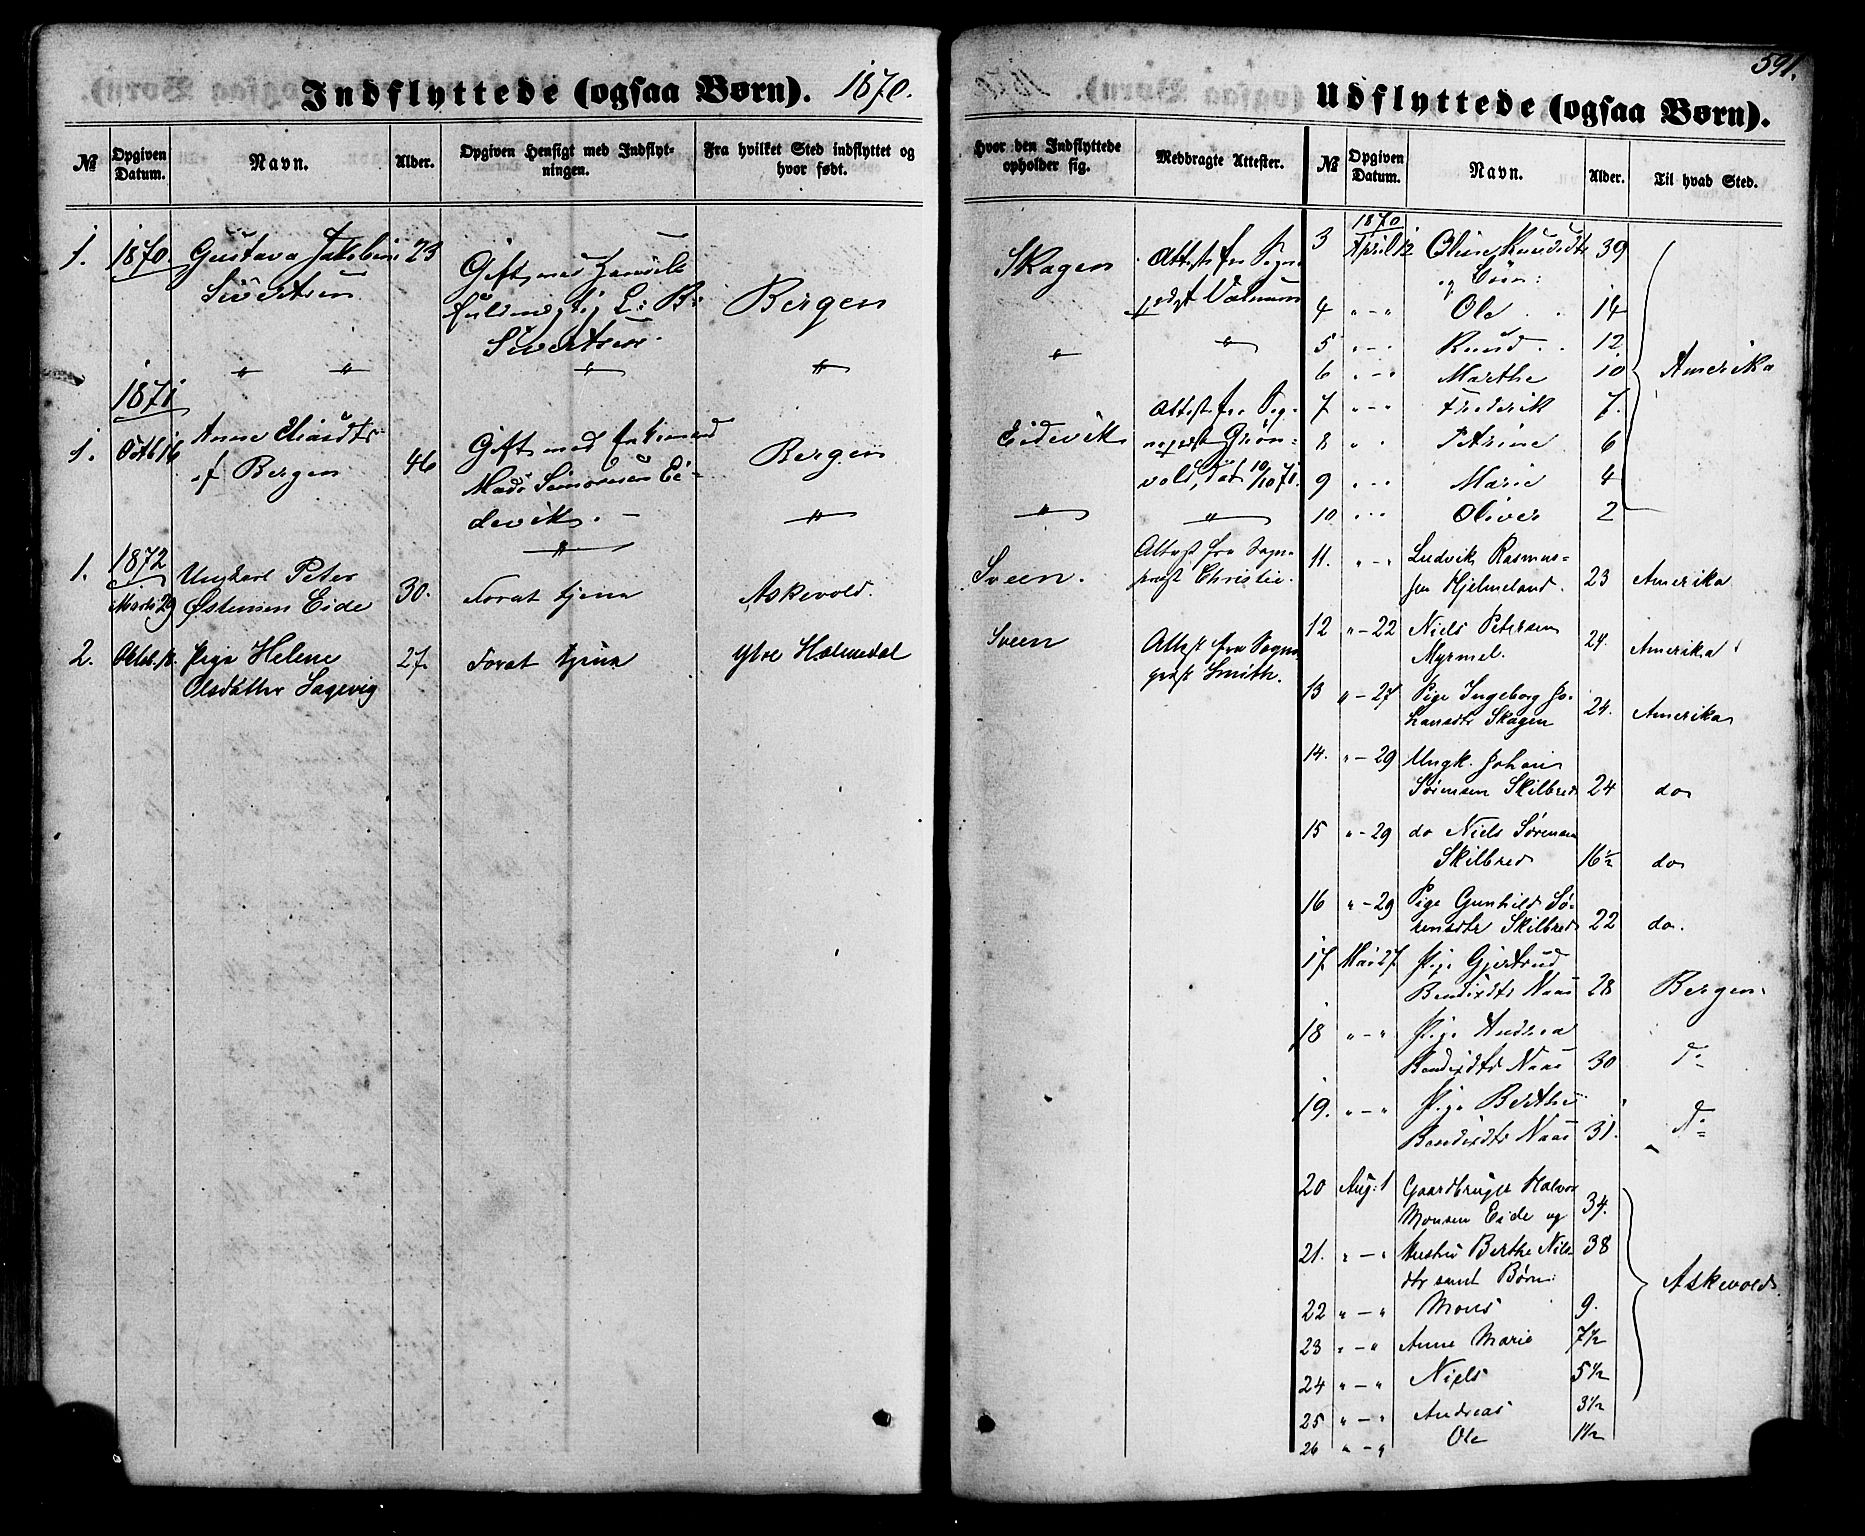 Indflyttede (ogsaa Børn). 1870.
№ Opgiven Datum. Navn. Alder. Opgiven Hensigt med Indflytningen. Fra hvilket Sted indflyttet og hvor født.
1. 1870. Gustava Jakobine 23
Sivertsen
Gift med
fuldmegtig L: B:
Sivertsen.
Bergen
" " " "
1871
1. Octb 16 Anne
af Bergen
46
Gift med Enkemand
Mads Simonsen Ei-
devik. -
Bergen
" "
1. 1872
Marts 29 Ungkarl Peter
Østensen Eide
30. Forat tjene Askevold.
2. Oktob. Pige Helene
Olsdatter Sagevig
27. Forat tjene Ytre Holmedal
591.
Udflyttede (ogsaa Børn).
Hvor den Indflyttede opholder sig. Medbragte Attester. № Opgiven Datum. Navn. Alder. Til hvad Sted.
Skagen Attest fra Sogne-
"
"
Eidevik Attest fra Sog-
nepræst Grøn-
vold, Dat 19/10 71.
" "
Sveen. Attest fra Sogne-
præst Christie.
Sveen Attest fra Sogne-
præst Smith.
1870
3 April 12 Oline Knudsdtr 39
og Børn:
4 " - " Ole 14
5 " - " Knud 12
6 " - " Marthe 10 Amerika
7 " - " Frederik 7.
8 " " Petrine 6
9 " - " Marie 4
10 " - " Oliver 2
11. " - " Ludvik Rasmus-
sen Hjelmeland. 23 Amerika
12 " - 22 Niels Petersen
Myrmel. 24. Amerika
13 " - 27 Pige Ingeborg Jo-
hansdtr Skagen 24. Amerika
14. " - 29 Ungk. Johan
Sørensen Skilbred 24 do
15 " - 29 do Niels Sørensen
Skilbred 16½ do
16 " - 29 Pige Gunhild Sø-
rensdtr Skilbred 22 do.
17 Mai 27. Pige Gjertrud
Bendixdtr Naas 28 Bergen.
18 " - " Pige Andrea
Bendixdtr Naas 30 Do
19. " - " Pige Berthe
Bendixdtr Naas 31. Do
20 Aug: 1 Gaardbruger Halvor
Monsen Eide og 34.
21. " - " Hustru Berthe Niels- 38
dtr samt Børn: Askevold.
22 " - " Mons 9.
23 " - " Anne Marie 7½
24 " - " Niels 5½
25 " - " Andreas 3½
26 " - " Ole 1½